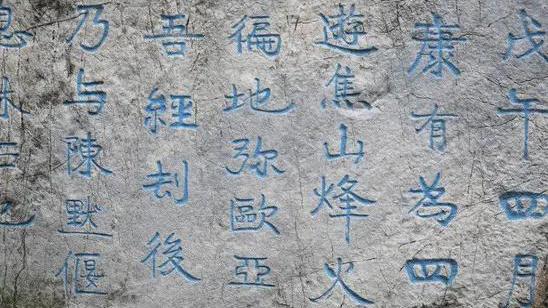 戊午四月
康有為四
遊焦山烽火
徧地弥歐亞
吾經刦後
乃与陳默偃
息